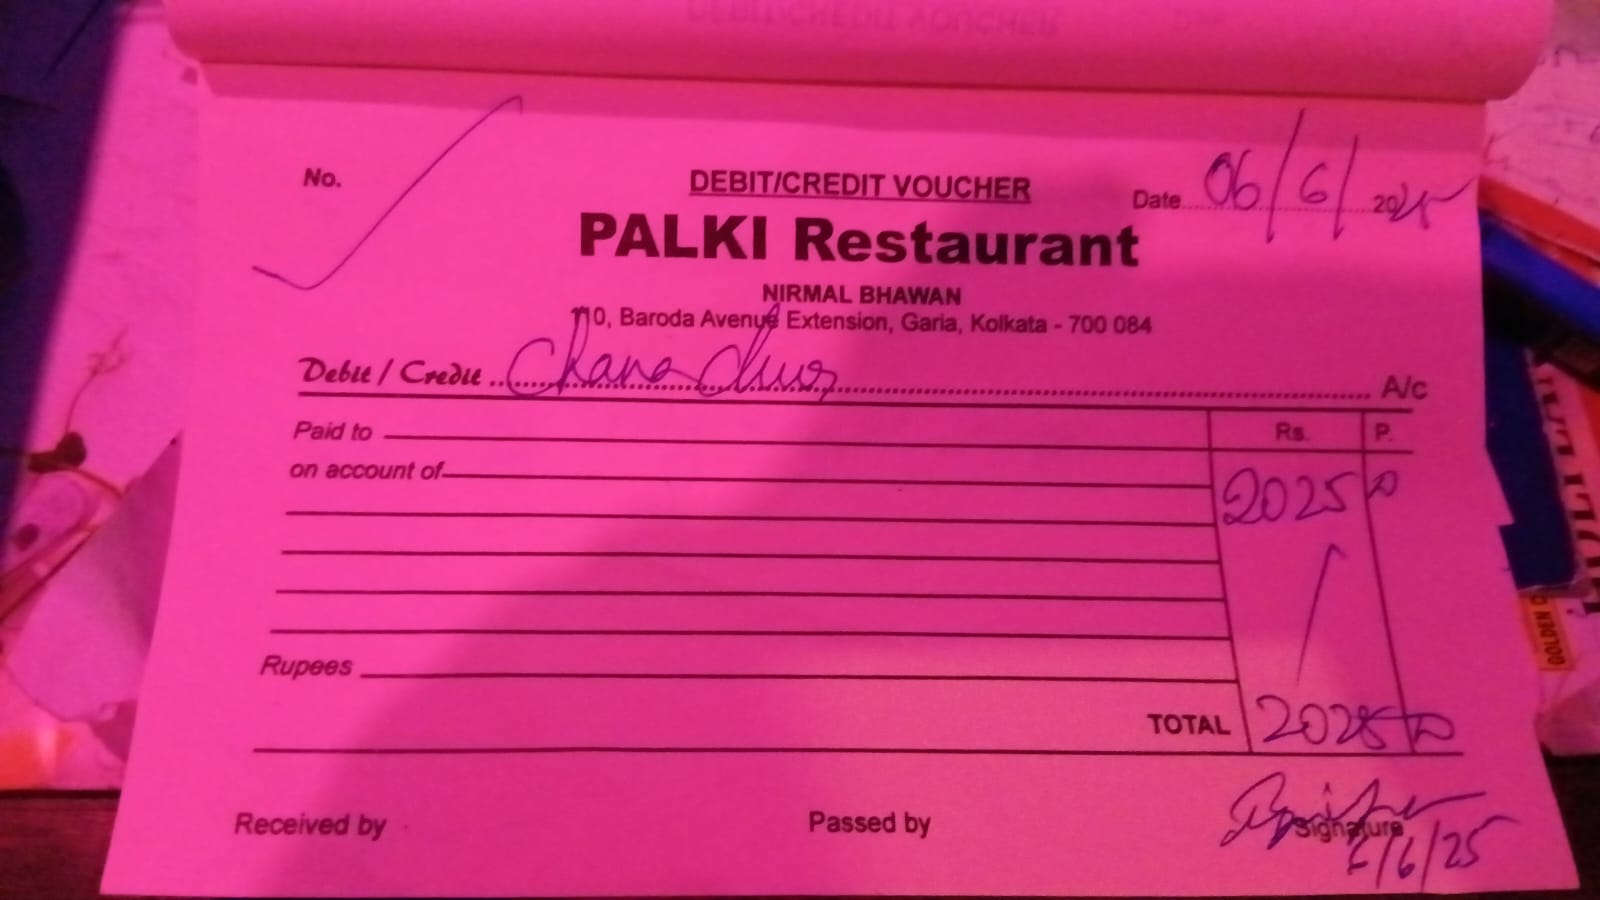 No.
DEBIT/CREDIT VOUCHER
Date 06/6/2025
PALKI Restaurant
NIRMAL BHAWAN
110, Baroda Avenue Extension, Garia, Kolkata - 700 084
Debit / Credit Chana Chur A/c
Paid to
Rs. P.
on account of
2025
Rupees
TOTAL 2025
Received by
Passed by
Signature
6/6/25
GOLDEN